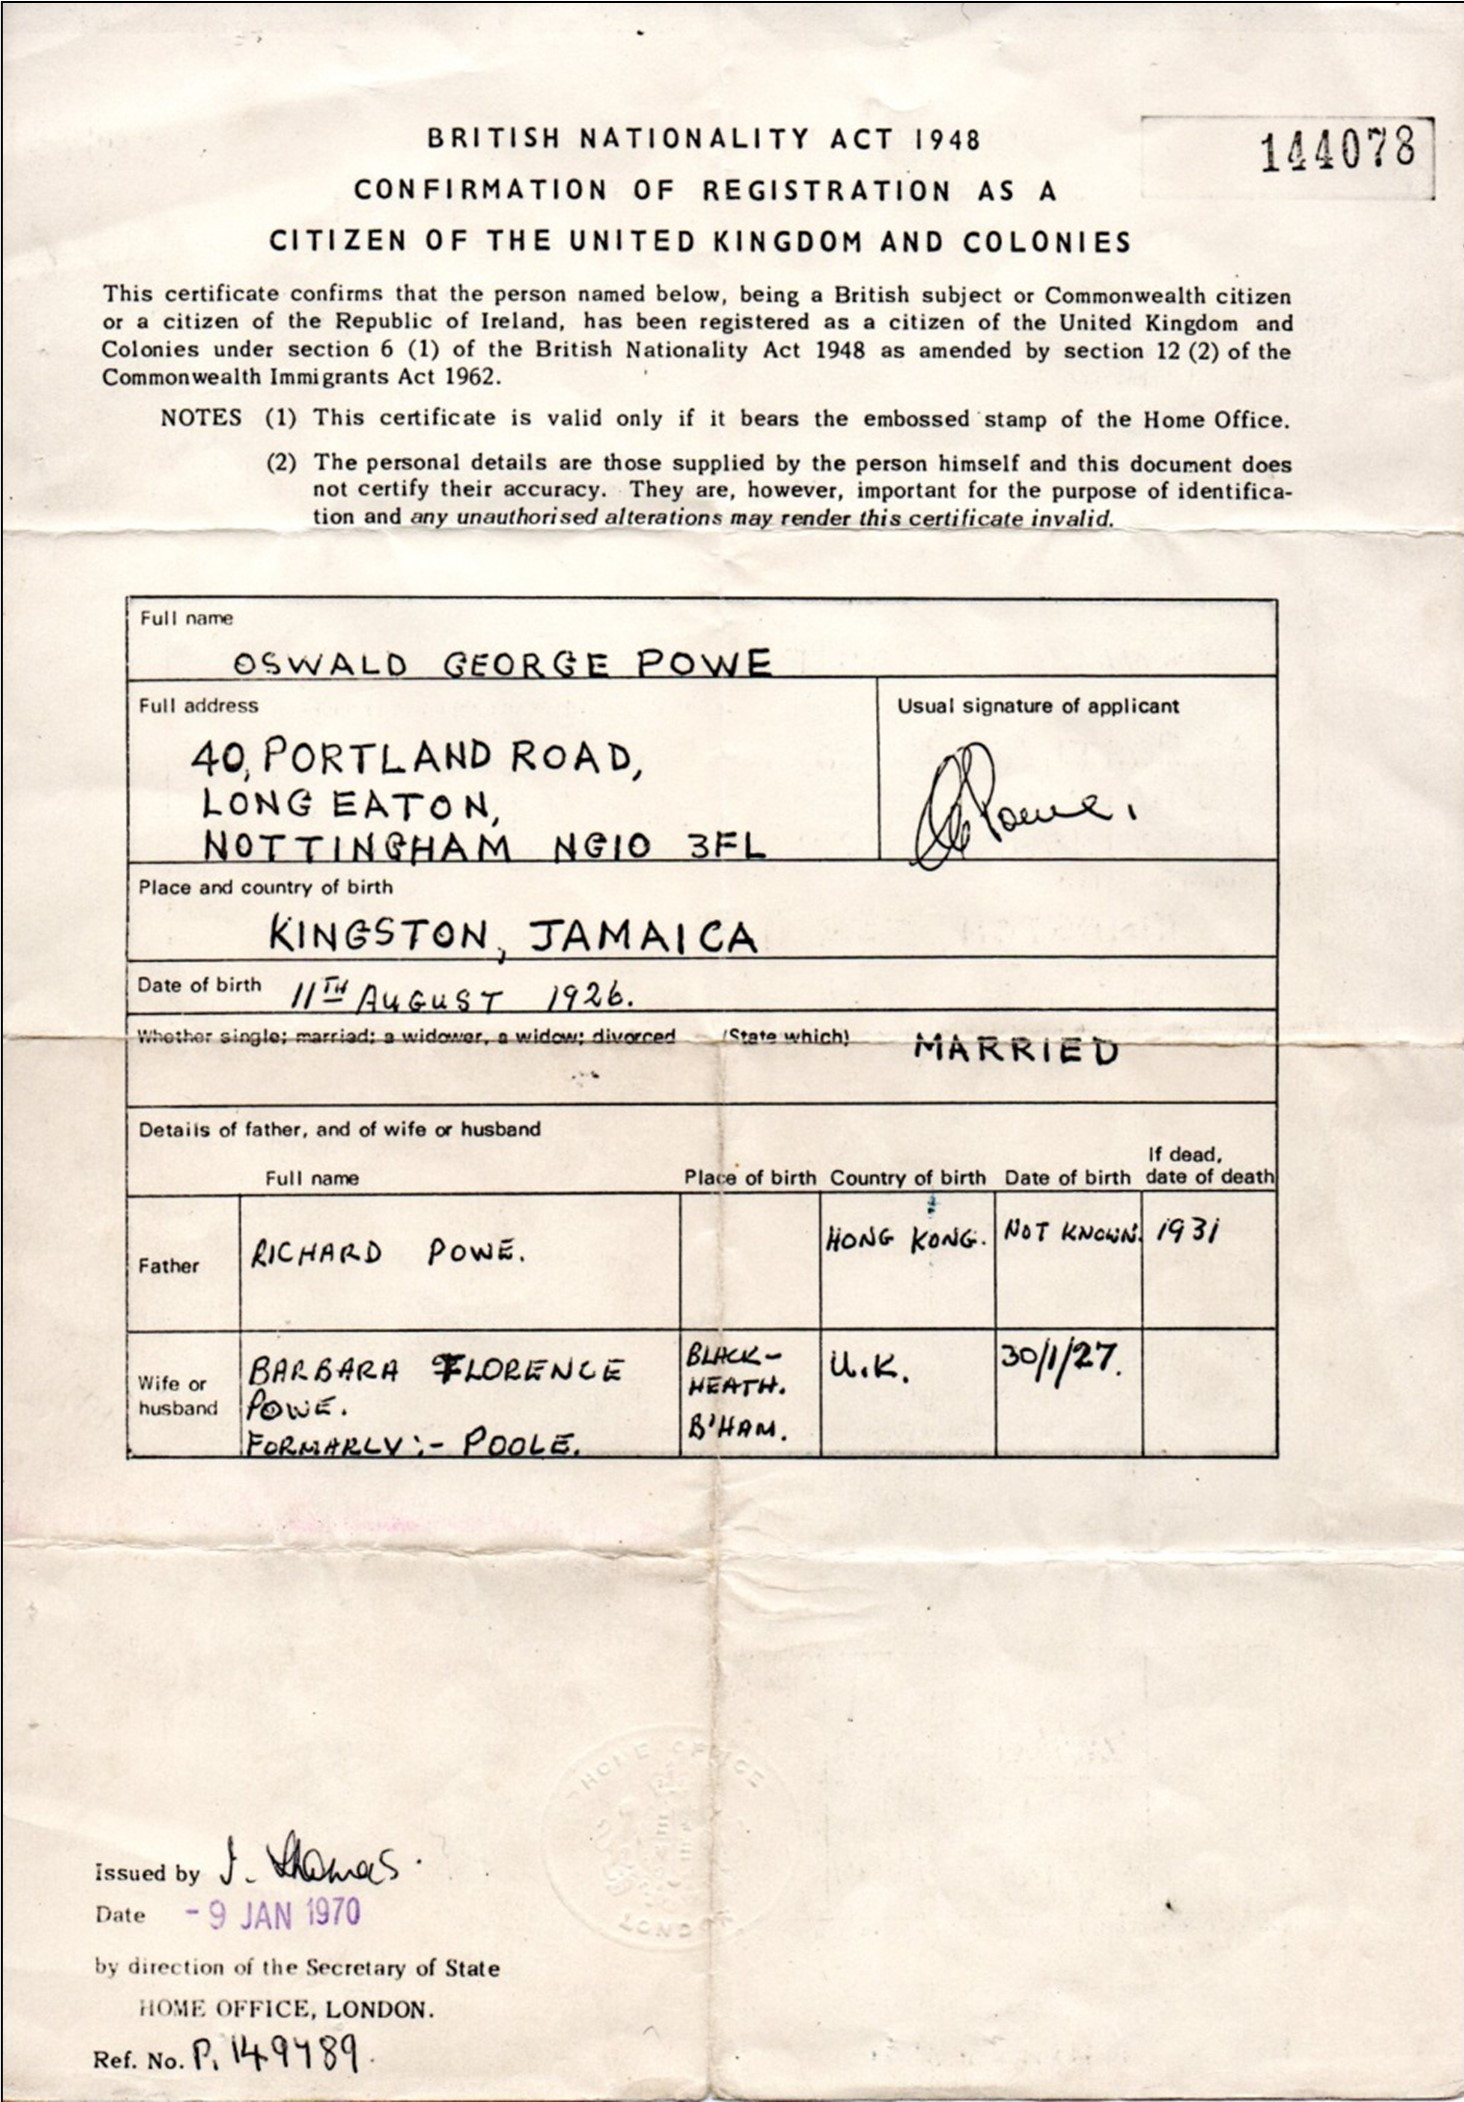 144078
BRITISH NATIONALITY ACT 1948
CONFIRMATION OF REGISTRATION AS A
CITIZEN OF THE UNITED KINGDOM AND COLONIES
This certificate confirms that the person named below, being a British subject or Commonwealth citizen
or a citizen of the Republic of Ireland, has been registered as a citizen of the United Kingdom and
Colonies under section 6 (1) of the British Nationality Act 1948 as amended by section 12 (2) of the
Commonwealth Immigrants Act 1962.
NOTES (1) This certificate is valid only if it bears the embossed stamp of the Home Office.
(2) The personal details are those supplied by the person himself and this document does
not certify their accuracy. They are, however, important for the purpose of identifica-
tion and any unauthorised alterations may render this certificate invalid.
Full name
OSWALD GEORGE POWE
Full address
40, PORTLAND ROAD,
LONG EATON,
NOTTINGHAM NG10 3FL
Usual signature of applicant
Powe.
Place and country of birth
KINGSTON, JAMAICA
Date of birth 11TH AUGUST 1926.
Whether single; married; a widower, a widow; divorced (State which) MARRIED
Details of father, and of wife or husband
Full name Place of birth Country of birth Date of birth If dead, date of death
Father RICHARD POWE. HONG KONG. NOT KNOWN. 1931
Wife or husband
BARBARA FLORENCE
POWE.
FORMARLY :- POOLE.
BLACK-
HEATH.
B'HAM.
U.K.
30/1/27.
HOME OFFICE
LONDON
Issued by J. Thomas.
Date - 9 JAN 1970
by direction of the Secretary of State
HOME OFFICE, LONDON.
Ref. No. P. 149789.